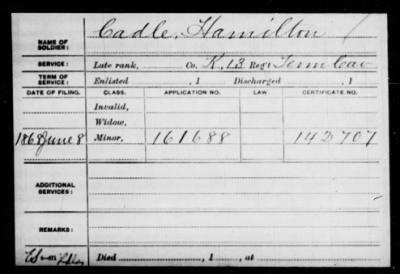 NAME OF SOLDIER: Cadle, Hamilton
SERVICE: Late rank, Co. K, 13 Reg't Tenn Cav
TERM OF SERVICE: Enlisted , 1 Discharged , 1
DATE OF FILING. CLASS. APPLICATION NO. LAW. CERTIFICATE NO.
Invalid,
Widow,
1868 June 8 Minor, 161688 142707
ADDITIONAL SERVICES:
REMARKS:
Died , 1 , at